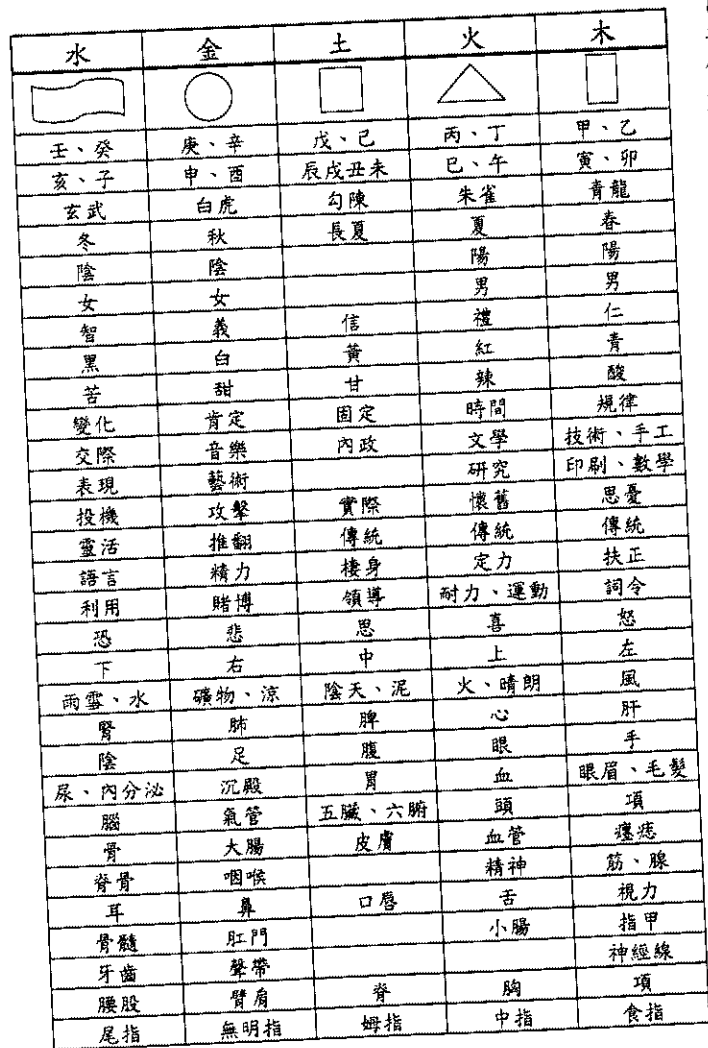 水 金 土 火 木
壬、癸 庚、辛 戊、己 丙、丁 甲、乙
亥、子 申、酉 辰戌丑未 巳、午 寅、卯
玄武 白虎 勾陳 朱雀 青龍
冬 秋 長夏 夏 春
陰 陰 陽 陽
女 女 男 男
智 義 信 禮 仁
黑 白 黃 紅 青
苦 甜 甘 辣 酸
變化 肯定 固定 時間 規律
交際 音樂 內政 文學 技術、手工
表現 藝術 研究 印刷、數學
投機 攻擊 實際 懷舊 思憂
靈活 推翻 傳統 傳統 傳統
語言 精力 棲身 定力 扶正
利用 賭博 領導 耐力、運動 詞令
恐 悲 思 喜 怒
下 右 中 上 左
雨雪、水 礦物、涼 陰天、泥 火、晴朗 風
腎 肺 脾 心 肝
陰 足 腹 眼 手
尿、內分泌 沉殿 胃 血 眼眉、毛髮
腦 氣管 五臟、六腑 頭 項
骨 大腸 皮膚 血管 瘙痣
脊骨 咽喉 精神 筋、腺
耳 鼻 口唇 舌 視力
骨髓 肛門 小腸 指甲
牙齒 聲帶 神經線
腰股 臂肩 脊 胸 項
尾指 無明指 姆指 中指 食指